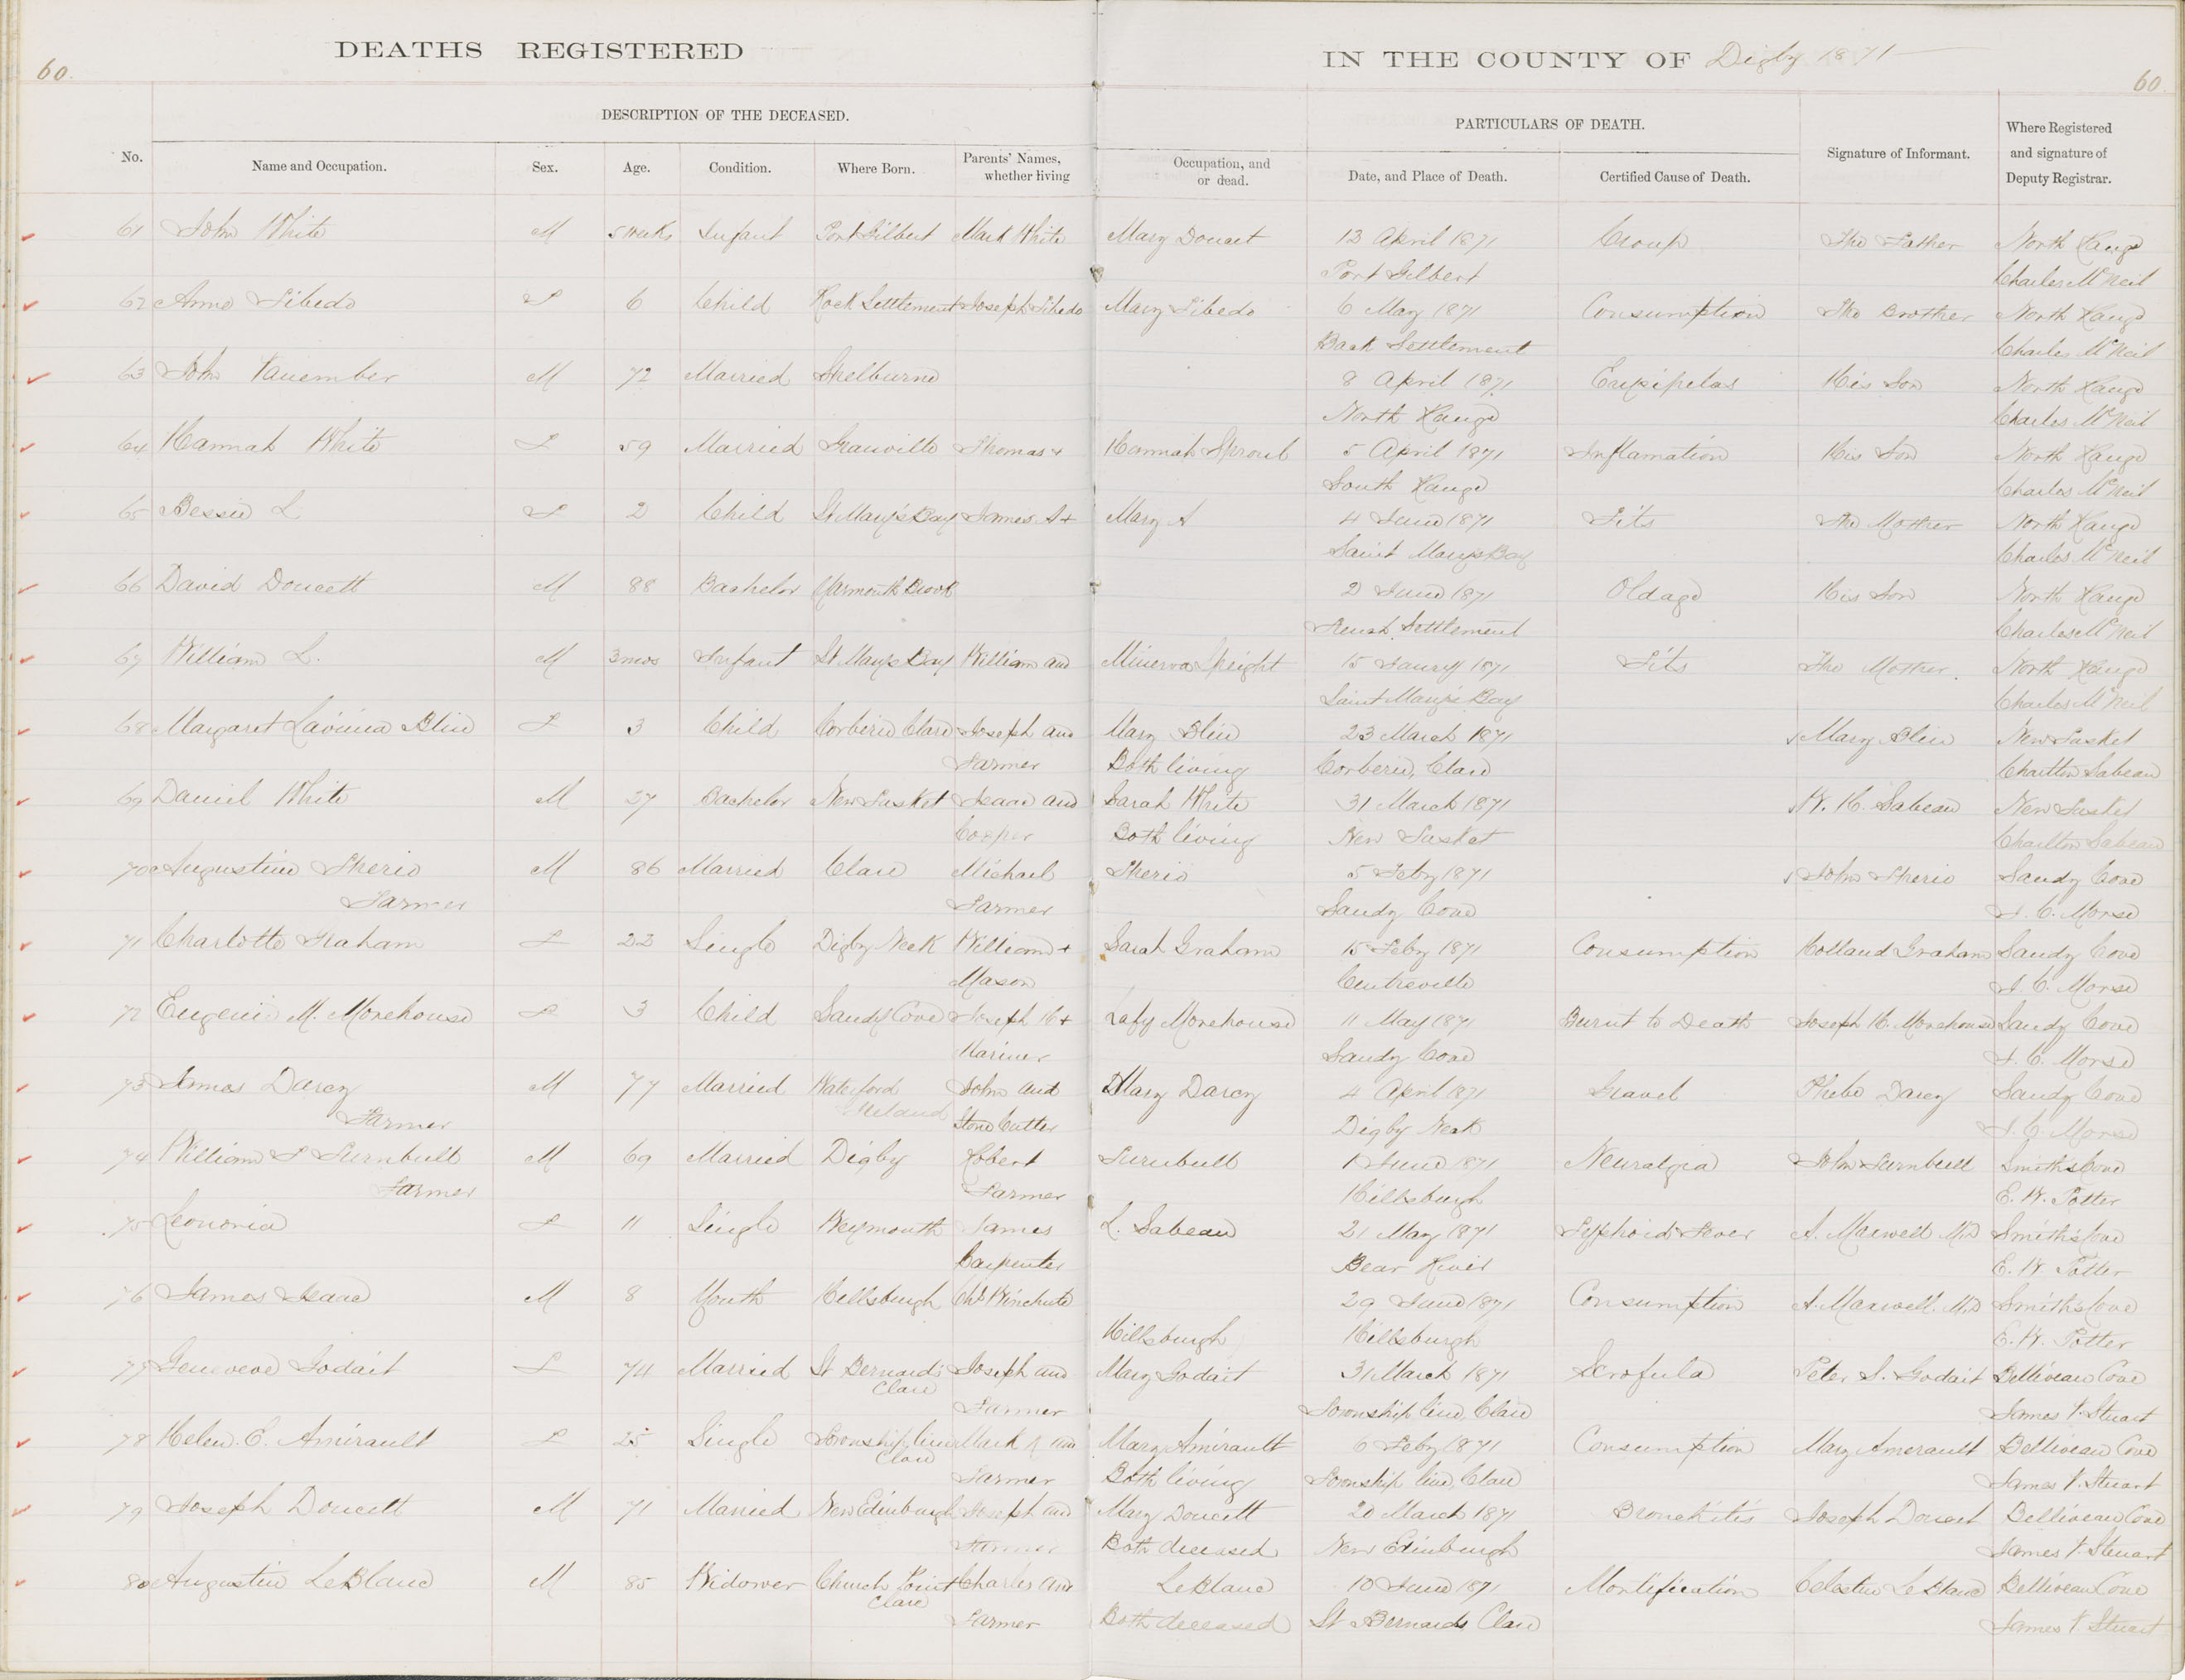 DEATHS REGISTERED IN THE COUNTY OF Digby 1871
60. 60.
DESCRIPTION OF THE DECEASED. PARTICULARS OF DEATH.
No. Name and Occupation. Sex. Age. Condition. Where Born. Parents' Names, whether living Occupation, and or dead. Date, and Place of Death. Certified Cause of Death. Signature of Informant. Where Registered and signature of Deputy Registrar.
61 John White M 5 Weeks Infant Port Gilbert Mark White Mary Doucet 13 April 1871 Croup The Father North Range
Port Gilbert Charles McNeil
62 Anne Tibedo F 6 Child Back Settlement Joseph Tibedo Mary Tibedo 6 May 1871 Consumption The Brother North Range
Back Settlement Charles McNeil
63 John Vanember M 72 Married Shelburne 8 April 1871 Erisipelas His Son North Range
North Range Charles McNeil
64 Hannah White F 59 Married Granville Thomas + Hannah Sproul 5 April 1871 Inflamation His Son North Range
South Range Charles McNeil
65 Bessie L F 2 Child St Mary's Bay James A + Mary A 4 June 1871 Fits The Mother North Range
Saint Marys Bay Charles McNeil
66 David Doucett M 88 Bachelor Yarmouth Brook 2 June 1871 Oldage His Son North Range
French Settlement Charles McNeil
67 William L. M 3 mos Infant St Marys Bay William and Minerva Speight 15 Janry 1871 Fits The Mother. North Range
Saint Mary's Bay Charles McNeil
68 Margaret Lavinia Blin F 3 Child Corberie Clare Joseph and Mary Blin 23 March 1871 Mary Blin New Tusket
Farmer Both living Corberie, Clare Charlton Sabean
69 Daniel White M 27 Bachelor New Tusket Isaac and Sarah White 31 March 1871 W. H. Sabean New Tusket
Cooper Both living New Tusket Charlton Sabean
70 Augustine Therio M 86 Married Clare Michael Therio 5 Feby 1871 John Therio Sandy Cove
Farmer Farmer Sandy Cove J. C. Morse
71 Charlotte Graham F 22 Single Digby Neck William + Sarah Graham 15 Feby 1871 Consumption Holland Graham Sandy Cove
Mason Centreville J. C. Morse
72 Eugenie M. Morehouse F 3 Child Sandy Cove Joseph H + Lafy Morehouse 11 May 1871 Burnt to Death Joseph H. Morehouse Sandy Cove
Mariner Sandy Cove J. C. Morse
73 James Darcy M 77 Married Waterford Ireland John and Mary Darcy 4 April 1871 Gravel Phebe Darcy Sandy Cove
Farmer Stone Cutter Digby Neck J. C. Morse
74 William F Turnbull M 69 Married Digby Robert Turnbull 1 June 1871 Neuralgia John Turnbull Smith's Cove
Farmer Farmer Hillsburgh E. W. Potter
75 Leonoria F 11 Single Weymouth James L. Sabean 21 May 1871 Typhoid Fever A. Maxwell MD Smith's Cove
Carpenter Bear River E. W. Potter
76 James Isaac M 8 Youth Hillsburgh Chs Winchute 29 June 1871 Consumption A. Maxwell. MD Smith's Cove
Hillsburgh Hillsburgh E. W. Potter
77 Geneveve Godait F 74 Married St Bernards Clare Joseph and Mary Godait 31 March 1871 Scrofula Peter S. Godait Belliveau Cove
Farmer Township line, Clare James P. Stuart
78 Helen. E. Amirault F 25 Single Township line Clare Mark A and Mary Amirault 6 Feby 1871 Consumption Mary Amerault Belliveau Cove
Farmer Both living Township line, Clare James P. Stuart
79 Joseph Doucett M 71 Married New Edinburgh Joseph and Mary Doucett 20 March 1871 Bronchitis Joseph Doucet Belliveau Cove
Farmer Both deceased New Edinburgh James P. Stewart
80 Augustin LeBlanc M 85 Widower Church Point Clare Charles and LeBlanc 10 June 1871 Mortification Celestin LeBlanc Belliveau Cove
Farmer Both deceased St Bernards Clare James P. Stuart